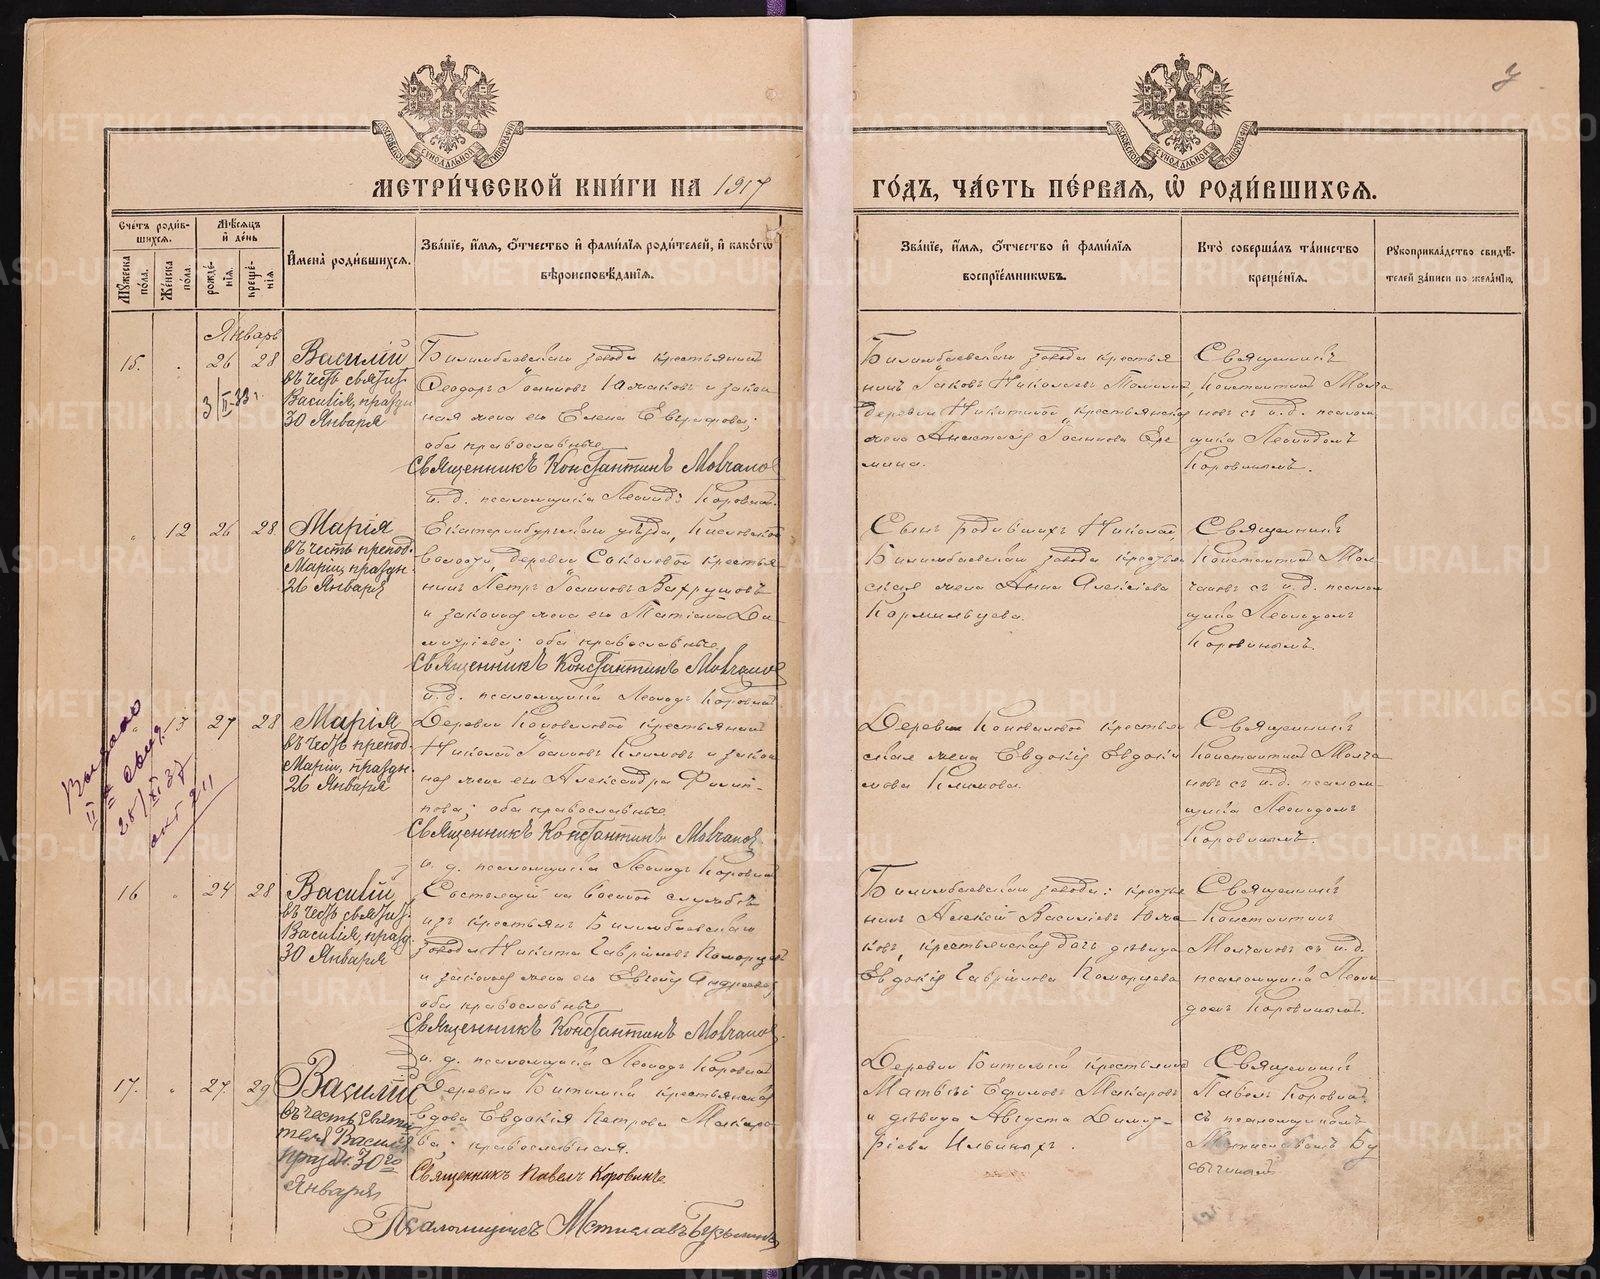 МЕТРИ́ЧЕСКОЙ КНИ́ГИ НА 1917
ГО́ДЪ, ЧА́СТЬ ПЕ́РВАЯ, Ѡ РОДИ́ВШИХСЯ.
Счетъ роди́вшихся.
Мꙋ́жеска по́ла.
Же́нска по́ла.
Мѣ́сяцъ и де́нь
рожде́нїя.
креще́нїя.
Имена̀ роди́вшихся.
Зва́нїе, и́мя, о́тчество и фами́лїя роди́телей, и како́гѡ
вѣроисповѣ́данїя.
Зва́нїе, и́мя, о́тчество и фами́лїя
воспрїе́мникѡвъ.
Кто̀ соверша́лъ та́инство
креще́нїя.
Рꙋкоприкла́дство свидѣ́-
телей за́писи по жела́нїю.
Январь
15.
26
28
3/II-33 г.
Василій
въ честь святит.
Василія, праздн
30 Января
Билимбаевскаго завода крестьянинъ
Ѳеодоръ Іоанновъ Юлаковъ и закон
ная жена его Елена Евграфова;
оба православные
Священникъ Константинъ Молчановъ
и. д. псаломщика Леонидъ Коровинъ.
Билимбаевскаго завода крестья
нинъ Іаковъ Николаевъ
деревни Никитиной крестьянская
жена Анастасія Іоаннова Ере
мина.
Священникъ
Константинъ Молча
новъ съ и. д. псалом
щика Леонидомъ
Коровинымъ.
12
26
28
Марія
въ честь препод.
Маріи, праздн.
26 Января
Екатеринбургскаго уѣзда,
волости, деревни Соколовой крестья
нинъ Петръ Іоанновъ Вахрушевъ
и законная жена его Татіана Ди
митріева; оба православные
Священникъ Константинъ Молчановъ
и. д. псаломщика Леонидъ Коровинъ
Сынъ родившихъ Николай,
Билимбаевскаго завода крестьян
ская жена Анна Алексіева
Кормильцева.
Священникъ
Константинъ Мол
чановъ съ и. д. псалом
щика Леонидомъ
Коровинымъ.
13
27
28
Марія
въ честь препод.
Маріи, праздн.
26 Января
Деревни Коноваловой крестьянинъ
Николай Іоанновъ Климовъ и закон
ная жена его Александра Филип-
пова; оба православные
Священникъ Константинъ Молчановъ
и. д. псаломщика Леонидъ Коровинъ
Деревни Коноваловой крестьян
ская жена Евдокія Евдоки
мова Климова.
Священникъ
Константинъ Молча
новъ съ и. д. псалом-
щика Леонидомъ
Коровинымъ.
Выдано
II-е свид.
28/XI 37
16
24
28
Василій
въ честь святит.
Василія, празд.
30 Января
Состоящій на военной службѣ
изъ крестьянъ Билимбаевскаго
завода Никита Гавріиловъ Коморцевъ
и законная жена его Евгенія Андреева;
оба православные
Священникъ Константинъ Молчановъ.
и. д. псаломщика Леонидъ Коровинъ
Билимбаевскаго завода: крестья
нинъ Алексій Василіевъ Юла
ковъ, крестьянская дочь дѣвица
Евдокія Гавріилова Коморцева
Священникъ
Константинъ
Молчановъ съ и. д.
псаломщика Леони
домъ Коровинымъ.
17.
27.
29
Василій
въ честь Святи
теля Василія
праздн. 30го
Января
Деревни Битимки крестьянская
вдова Евдокія Петрова Макаро
ва; православная.
Священникъ Павелъ Коровинъ.
Псаломщикъ Мстиславъ
Деревни Битимки крестьянинъ
Матвѣй Ефимовъ Макаровъ
и дѣвица Августа Димит-
ріева Ильиныхъ.
Священникъ
Павелъ Коровинъ
съ псаломщикомъ
Мстиславомъ